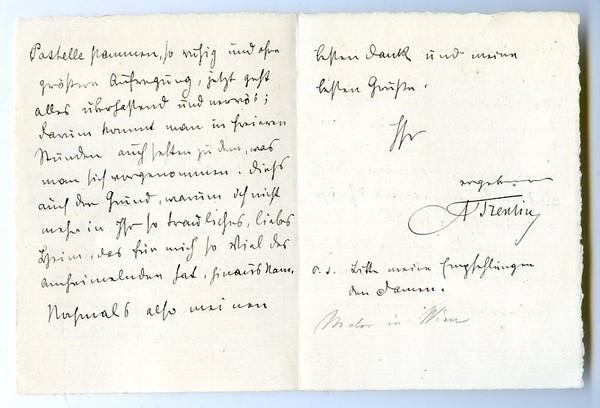 Pastelle stammen, so ruhig und ohne
größere Aufregung, jetzt geht
alles überhastend und nervös;
darum kommt man in freieren
Stunden auch selten zu dem, was
man sich vorgenommen. Dies
auch der Grund, warum ich nicht
mehr in Ihr so trauliches, liebes
Heim, das für mich so viel des
anheimelnden hat, hinaus kam.
Nochmals also meinen
besten Dank und meine
besten Grüße.
Ihr
ergebener
A Trentin
P. S. Bitte meine Empfehlungen
den Damen.
Maler in Wien